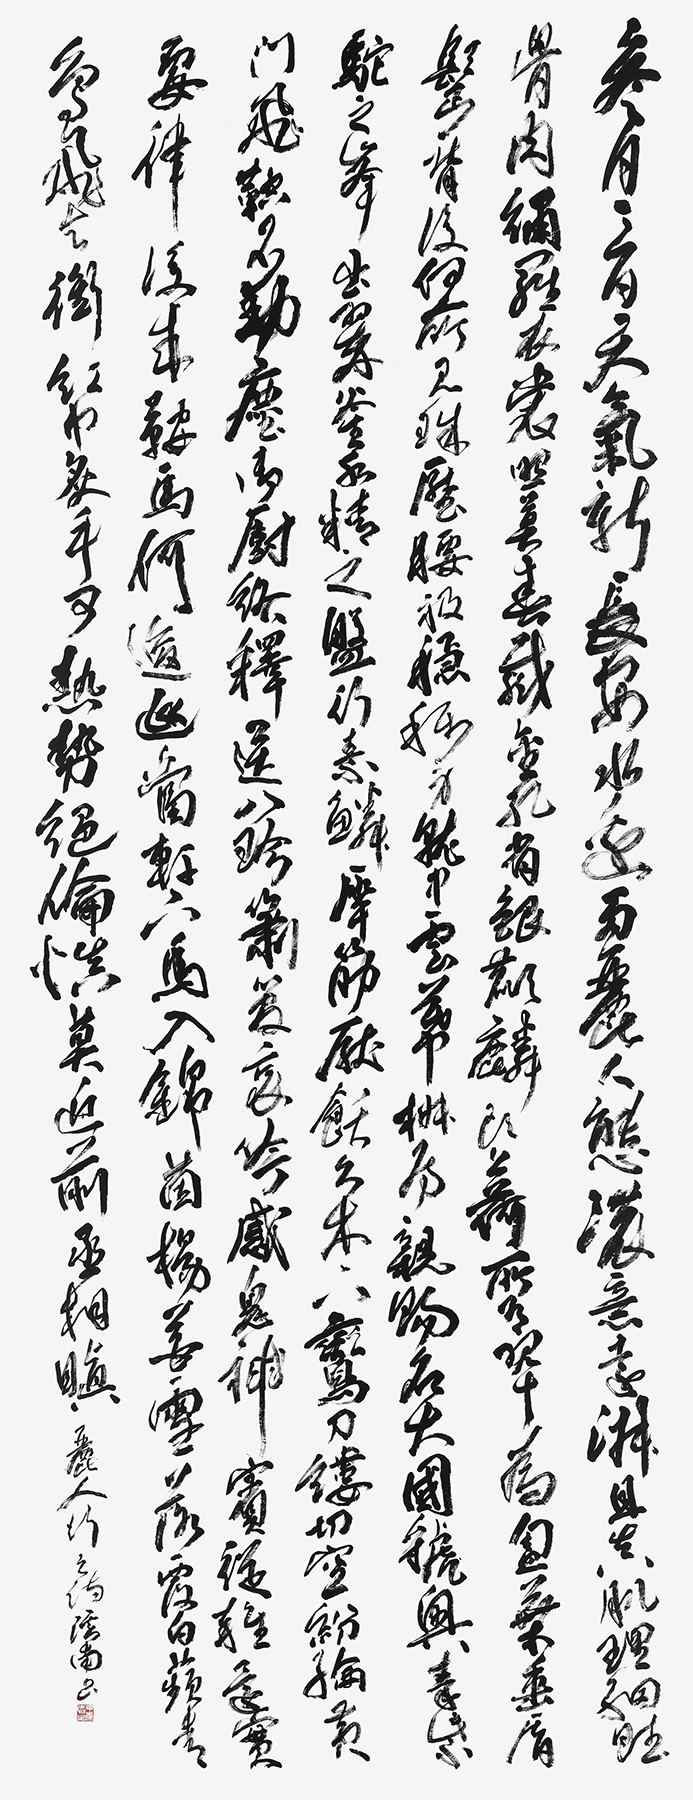 叁月三日天氣新長安水邊多麗人態濃意遠淑且真肌理細膩
骨肉繡羅衣裳照莫春蹙金孔雀銀麒麟頭上何所有翠為㔩葉垂脣
鬢背後何所見珠壓腰衱穩稱身就中雲幕椒房親賜名大國虢與秦紫
駝之峯出翠釜水精之盤行素鱗犀筯厭飫久未下鸞刀縷切空紛綸黃
門飛鞚不動塵御廚絡繹送八珍簫管哀吟感鬼神賓從雜遝實
要津後來鞍馬何逡巡當軒下馬入錦茵楊花雪落覆白蘋青
鳥飛去銜紅巾炙手可熱勢絕倫慎莫近前丞相瞋
麗人行之詩